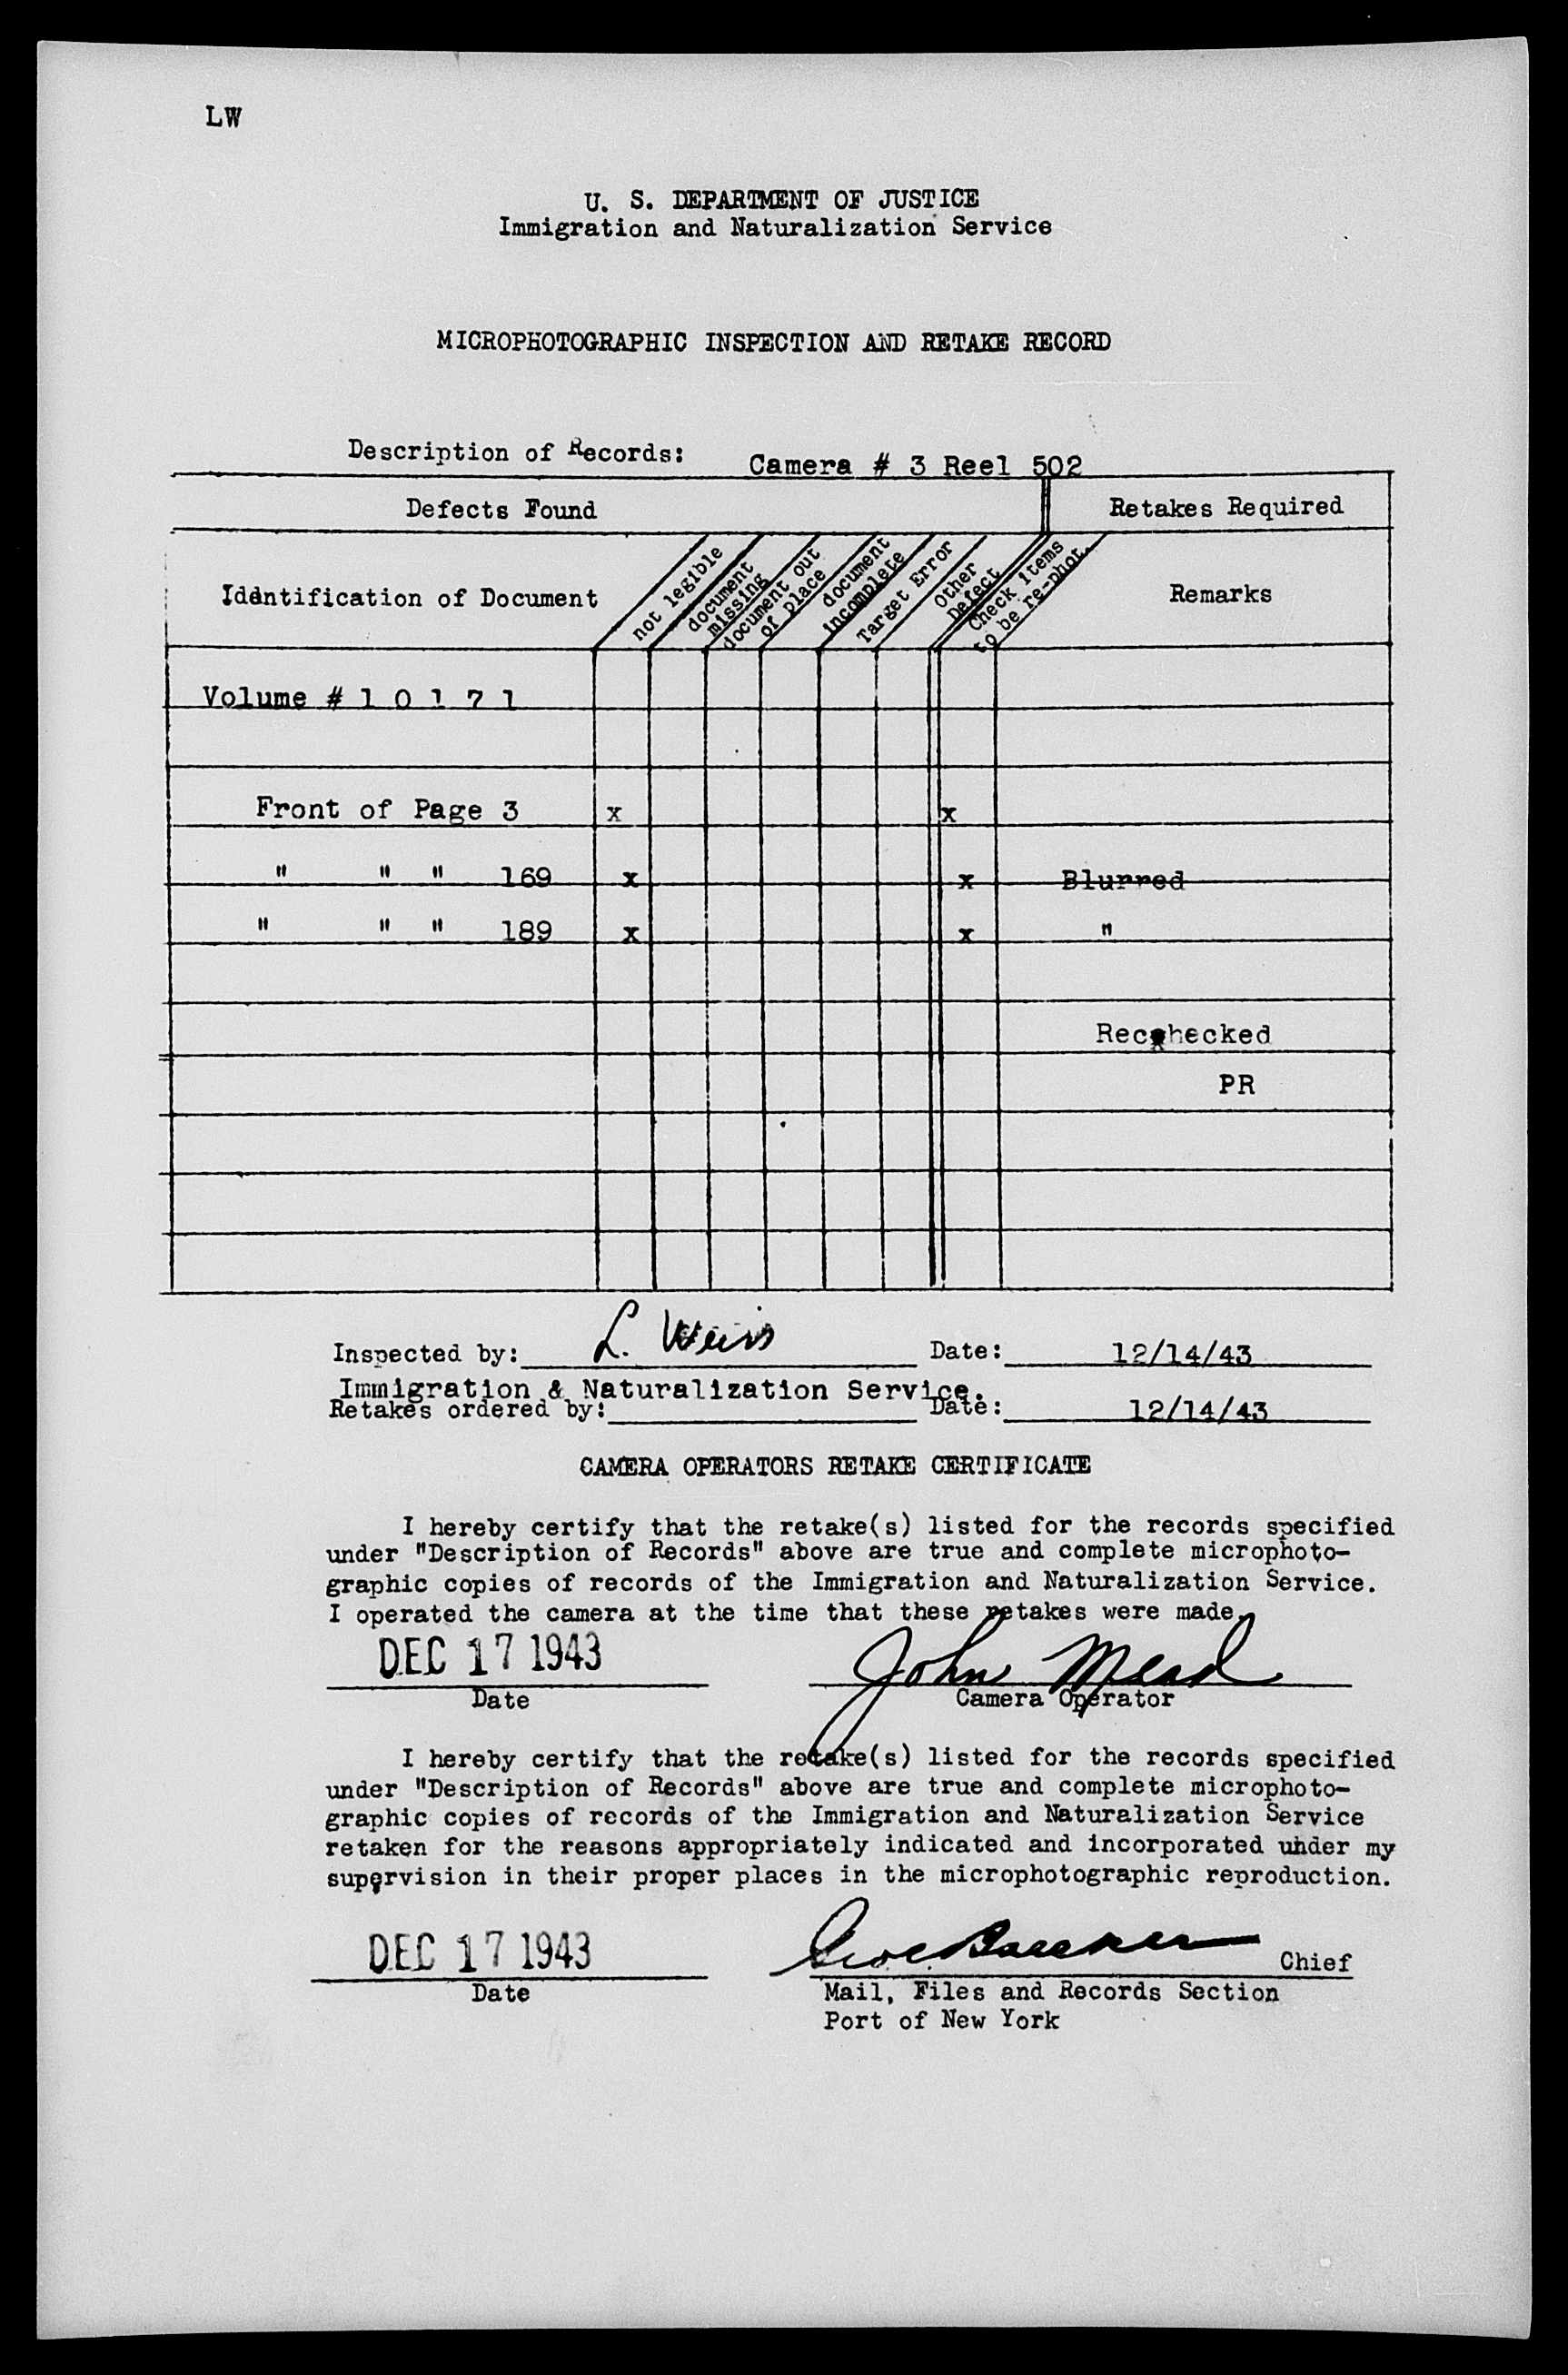 LW
U. S. DEPARTMENT OF JUSTICE
Immigration and Naturalization Service
MICROPHOTOGRAPHIC INSPECTION AND RETAKE RECORD
Description of Records: Camera # 3 Reel 502
Defects Found Retakes Required
Identification of Document
not legible
document
missing
document out
of place
document
incomplete
Target Error
Other
Defect
Check items
to be re-phot.
Remarks
Volume # 1 0 1 7 1
Front of Page 3 x x
" " " 169 x x Blurred
" " " 189 x x "
Rechecked
PR
Inspected by: L. Weiss Date: 12/14/43
Immigration & Naturalization Service.
Retakes ordered by: Date: 12/14/43
CAMERA OPERATORS RETAKE CERTIFICATE
I hereby certify that the retake(s) listed for the records specified
under "Description of Records" above are true and complete microphoto-
graphic copies of records of the Immigration and Naturalization Service.
I operated the camera at the time that these retakes were made.
DEC 17 1943 John Mead
Date Camera Operator
I hereby certify that the retake(s) listed for the records specified
under "Description of Records" above are true and complete microphoto-
graphic copies of records of the Immigration and Naturalization Service
retaken for the reasons appropriately indicated and incorporated under my
supervision in their proper places in the microphotographic reproduction.
DEC 17 1943 Chief
Date Mail, Files and Records Section
Port of New York